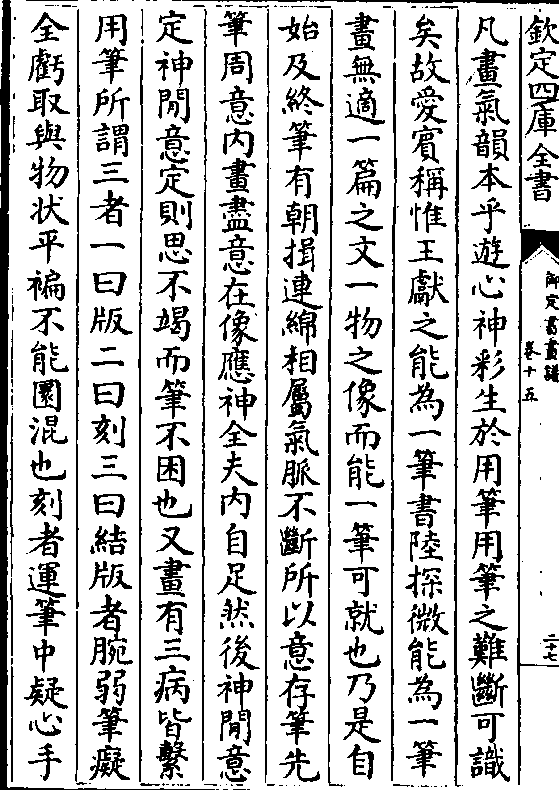 欽定四庫全書
御定書畫譜
卷十五
二十七
凡畫氣韻本乎遊心神彩生於用筆用筆之難斷可識
矣故愛賓稱惟王獻之能為一筆書陸探微能為一筆
畫無適一篇之文一物之像而能一筆可就也乃是自
始及終筆有朝揖連綿相屬氣脈不斷所以意存筆先
筆周意内畫盡意在像應神全夫内自足然後神閒意
定神閒意定則思不竭而筆不困也又畫有三病皆繫
用筆所謂三者一曰版二曰刻三曰結版者腕弱筆癡
全虧取與物状平褊不能圜混也刻者運筆中疑心手